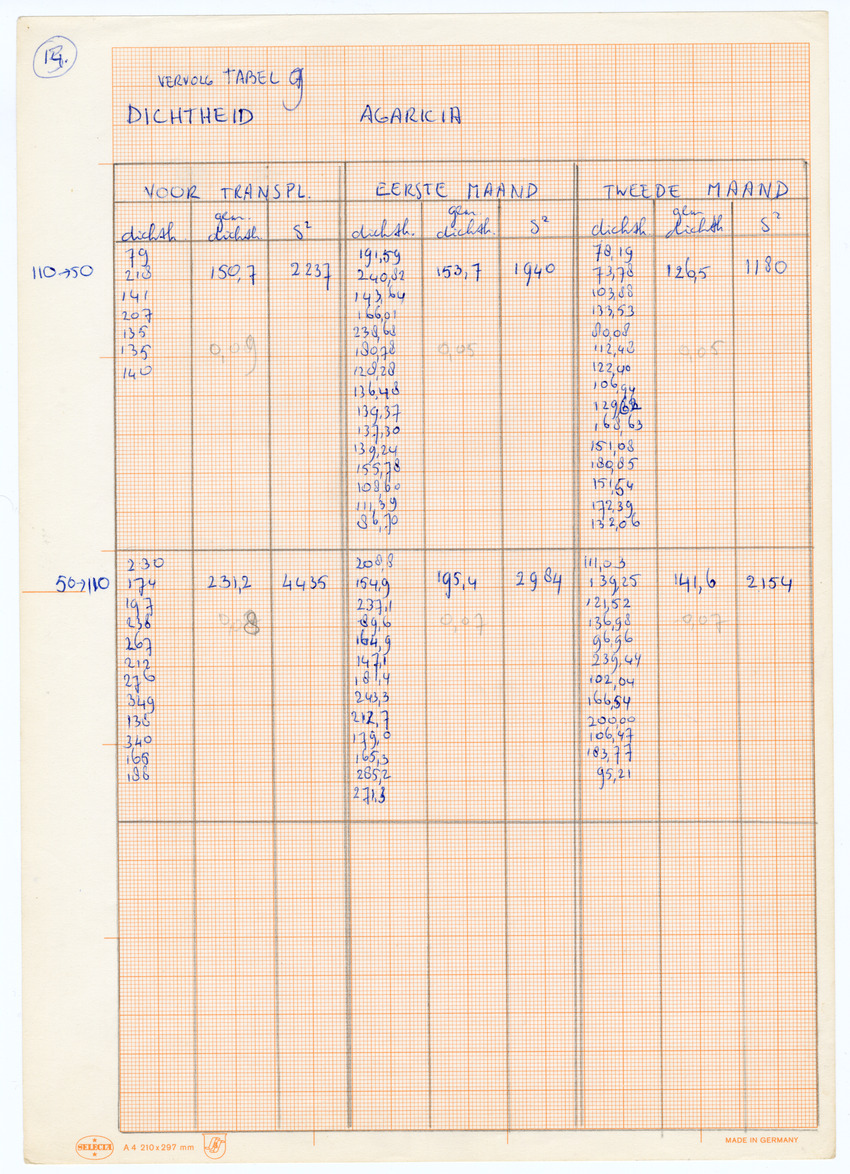 VERVOLG TABEL 9
DICHTHEID AGARICIA
VOOR TRANSPL. EERSTE MAAND TWEEDE MAAND
dichth. gem. dichth. S² dichth. gem. dichth. S² dichth. gem. dichth S²
79 191,59 78,19
110→50 213 150,7 2237 240,82 153,7 1940 73,78 126,5 1180
141 143,64 103,88
207 166,01 133,53
135 238,68 80,08
135 0,09 180,78 0,05 112,48 0,05
140 128,28 122,40
136,48 106,94
139,37
137,30 168,63
139,24 151,08
155,78 180,85
108,60 151,54
111,39 172,39
86,70 132,06
230 208,8 111,03
50→110 174 231,2 4435 154,9 195,4 2984 139,25 141,6 2154
197 237,1 121,52
238 0,08 89,6 0,07 136,98 0,07
267 164,9 96,96
212 147,1 239,44
276 181,4 102,04
349 243,3 166,54
138 212,7 200,00
340 179,0 106,47
165 165,3 183,77
188 285,2 95,21
271,3
SELECTA A4 210x297 mm MADE IN GERMANY